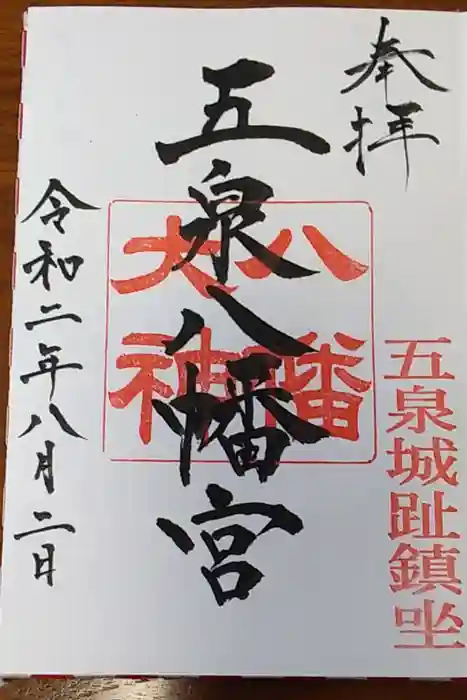 奉拝
五泉城趾鎮坐
五泉八幡宮
八幡
大神
令和二年八月二日